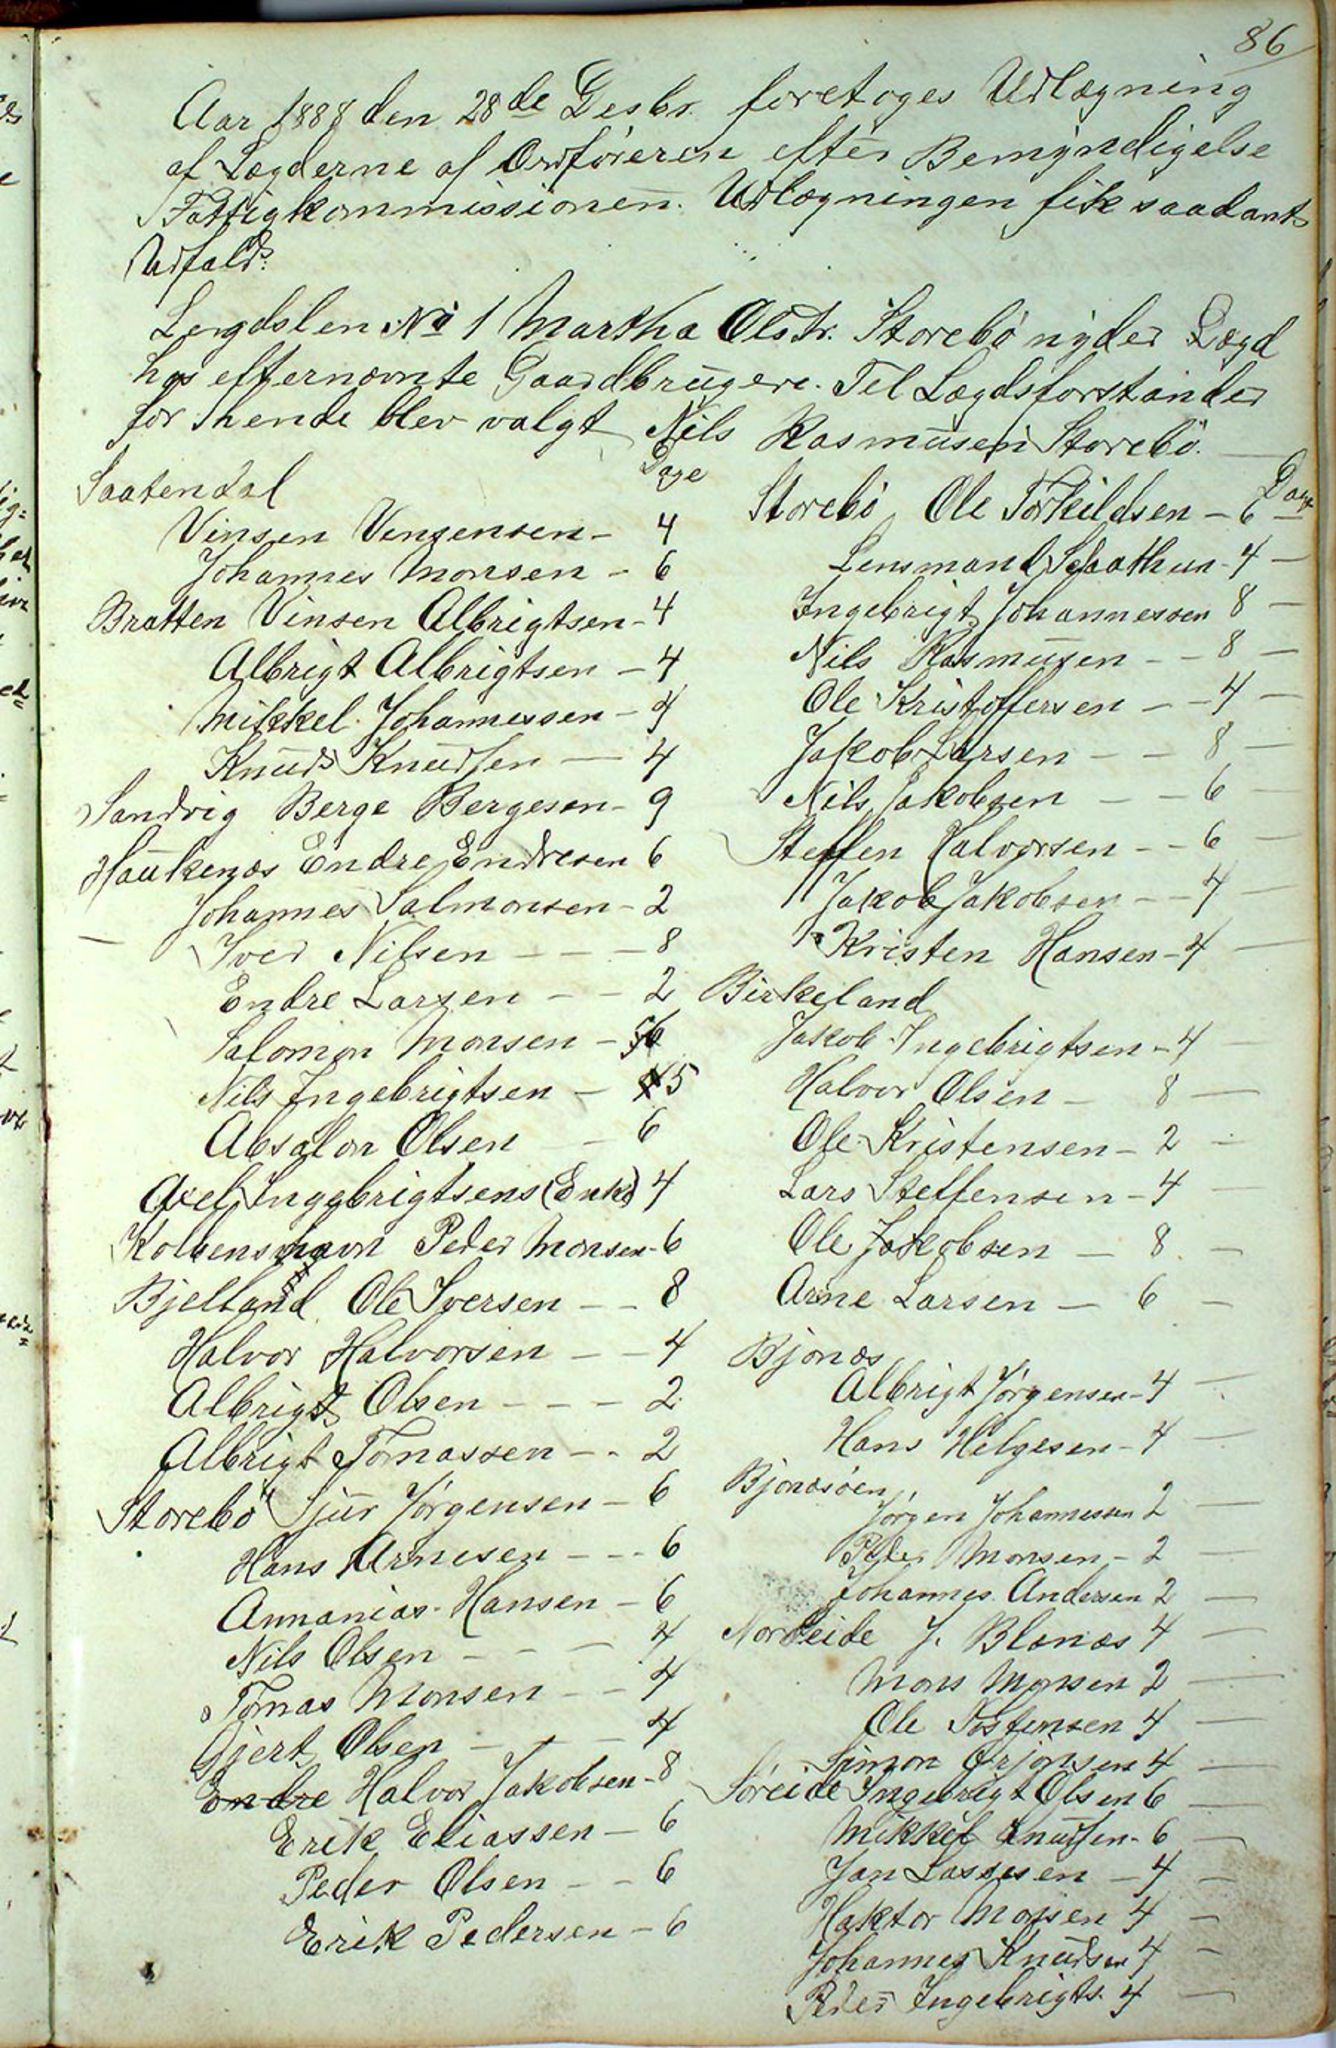 86
Aar 1888 den 28de Desbr. foretoges Udlægning
af Lægderne af Ordføreren efter Bemyndigelse
Fattigkommissionen. Udlægningen fik saadant
Udfald:
Lægdslem No 1 Martha Olsdtr. Storebø nyder Lægd
hos efternævnte Gaardbrugere. Til Lægdsforstander
for hende blev valgt Nils Rasmusen Storebø.
Dage
Saatendal
Vinsen Vensensen - 4
Johannes Monsen - 6
Bratten Vinsen Albrigtsen - 4
Albrigt Albrigtsen - 4
Mikkel Johannessen - 4
Knud Knudsen - 4
Sandvig Berge Bergesen - 9
Haukenæs Endre Endresen 6
Johannes Salmonsen - 2
Iver Nilsen - - - 8
Endre Larsen - - 2
Salomon Monsen - 6
Nils Ingebrigtsen - 5
Absalon Olsen - 6
Axel Ingebrigtsens (Enke) 4
Kolbenshavn Peder Monsen - 6
Bjelland Ole Iversen - - 8
Halvor Halvorsen - - 4
Albrigt Olsen - - - 2
Albrigt Tomassen - - 2
Storebø Sjur Jørgensen - 6
Hans Arnesen - - - 6
Annanias Hansen - 6
Nils Olsen - - - 4
Tomas Monsen - - 4
Gjert Olsen - - - 4
Endre Halvor Jakobsen - 8
Erik Eliassen - 6
Peder Olsen - - 6
Erik Pedersen - 6
Dage
Storebø Ole Torkildsen - 6 -
Lensmand - 4 -
Ingebrigt Johannessen 8 -
Nils Rasmusen - - 8 -
Ole Kristoffersen - - 4 -
Jakob Larsen - - 8 -
Nils Jakobsen - - 6 -
Steffen Halvorsen - - 6 -
Jakob Jakobsen - - 4 -
Kristen Hansen - 4 -
Birkeland
Jakob Ingebrigtsen - 4 -
Halvor Olsen - 8 -
Ole Kristensen - 2 -
Lars Steffensen - 4 -
Ole Jakobsen - 8 -
Arne Larsen - 6 -
Bjonæs
Albrigt Jørgensen - 4 -
Hans Helgesen - 4 -
Bjonæsøen
Jørgen Johannessen 2 -
Peder Monsen - 2 -
Johannes Andersen 2 -
Nordeide J. Blænæs 4 -
Mons Monsen 2 -
Ole Tostensen 4 -
Simon Ørjansen 4 -
Søreide Ingebrigt Olsen 6 -
Mikkel Knudsen - 6 -
Jan Lassesen - 4 -
Haktor Monsen 4 -
Johannes Knudsen 4 -
Peder Ingebrigts. 4 -